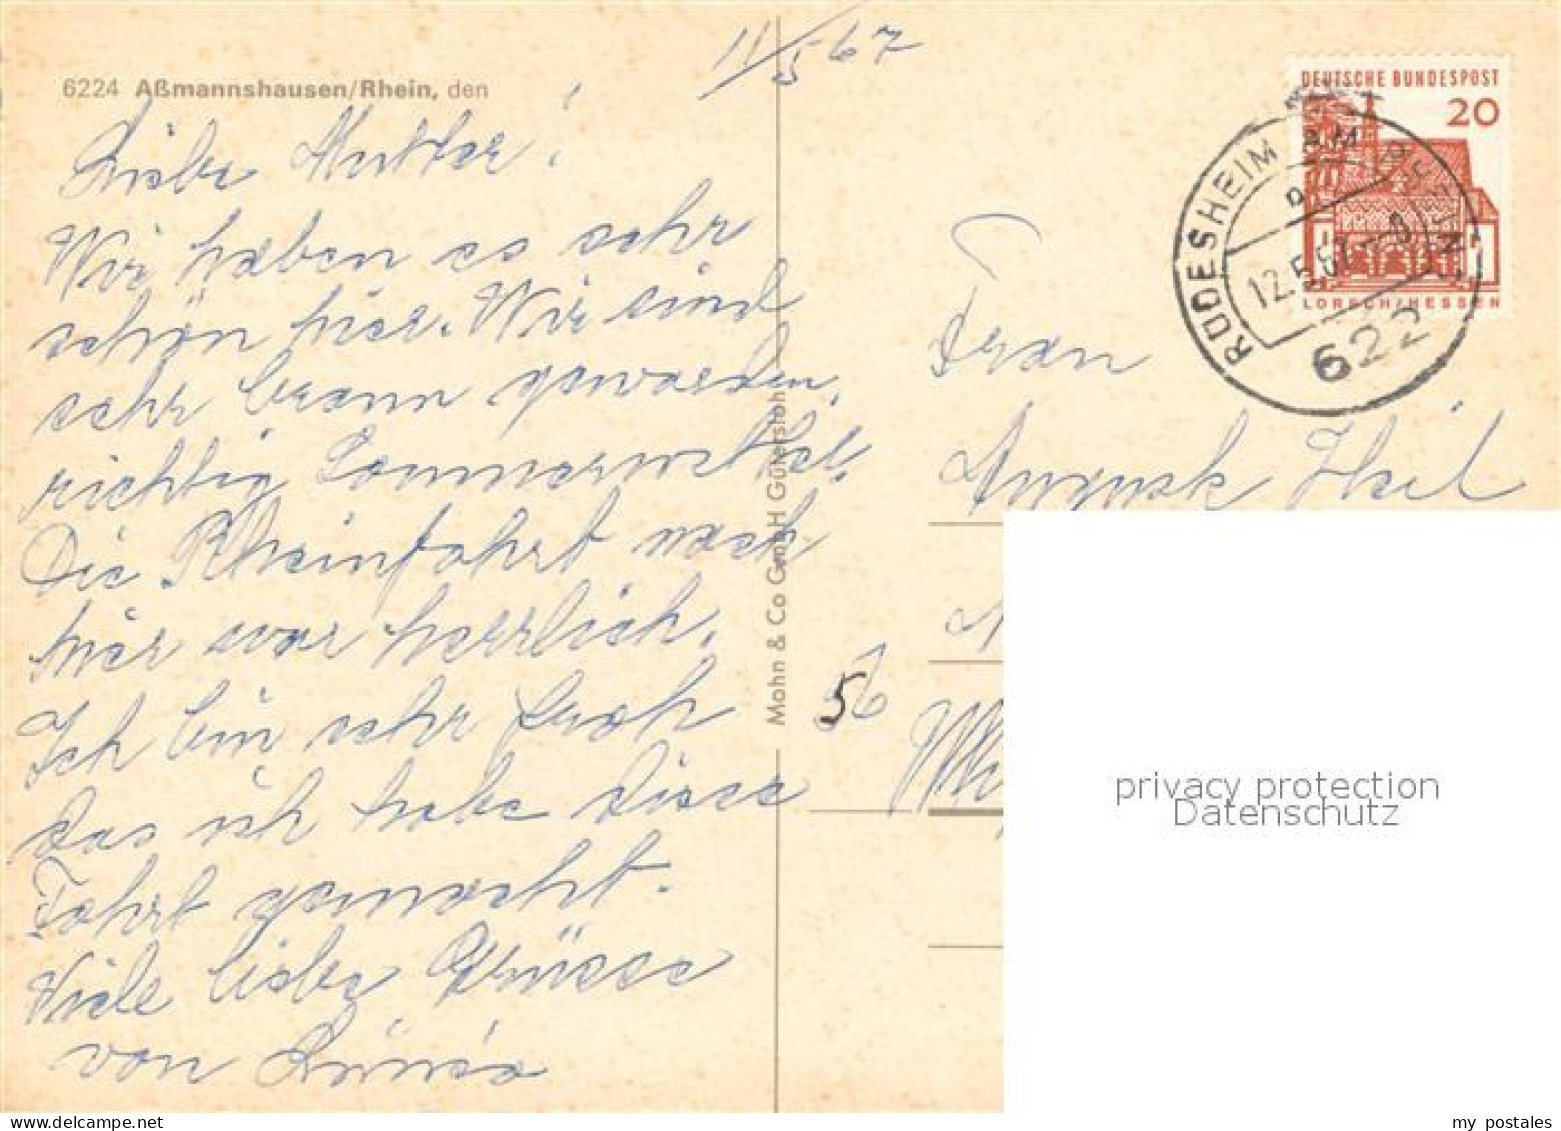 11/5 67
6224 Aßmannshausen/Rhein, den
Liebe Mutter!
Wir haben es sehr
schön hier. Wir sind
sehr braun geworden,
richtig Sommerwetter.
Die Rheinfahrt nach
hier war herrlich.
Ich bin sehr froh
das ich habe diese
Fahrt gemacht.
Viele liebe Grüsse
von
Mohn & Co GmbH Gütersloh
DEUTSCHE BUNDESPOST
20
LORSCH/HESSEN
RÜDESHEIM AM RHEIN
12.5.67
622
Frau
August Theil
56
privacy protection
Datenschutz
my postales